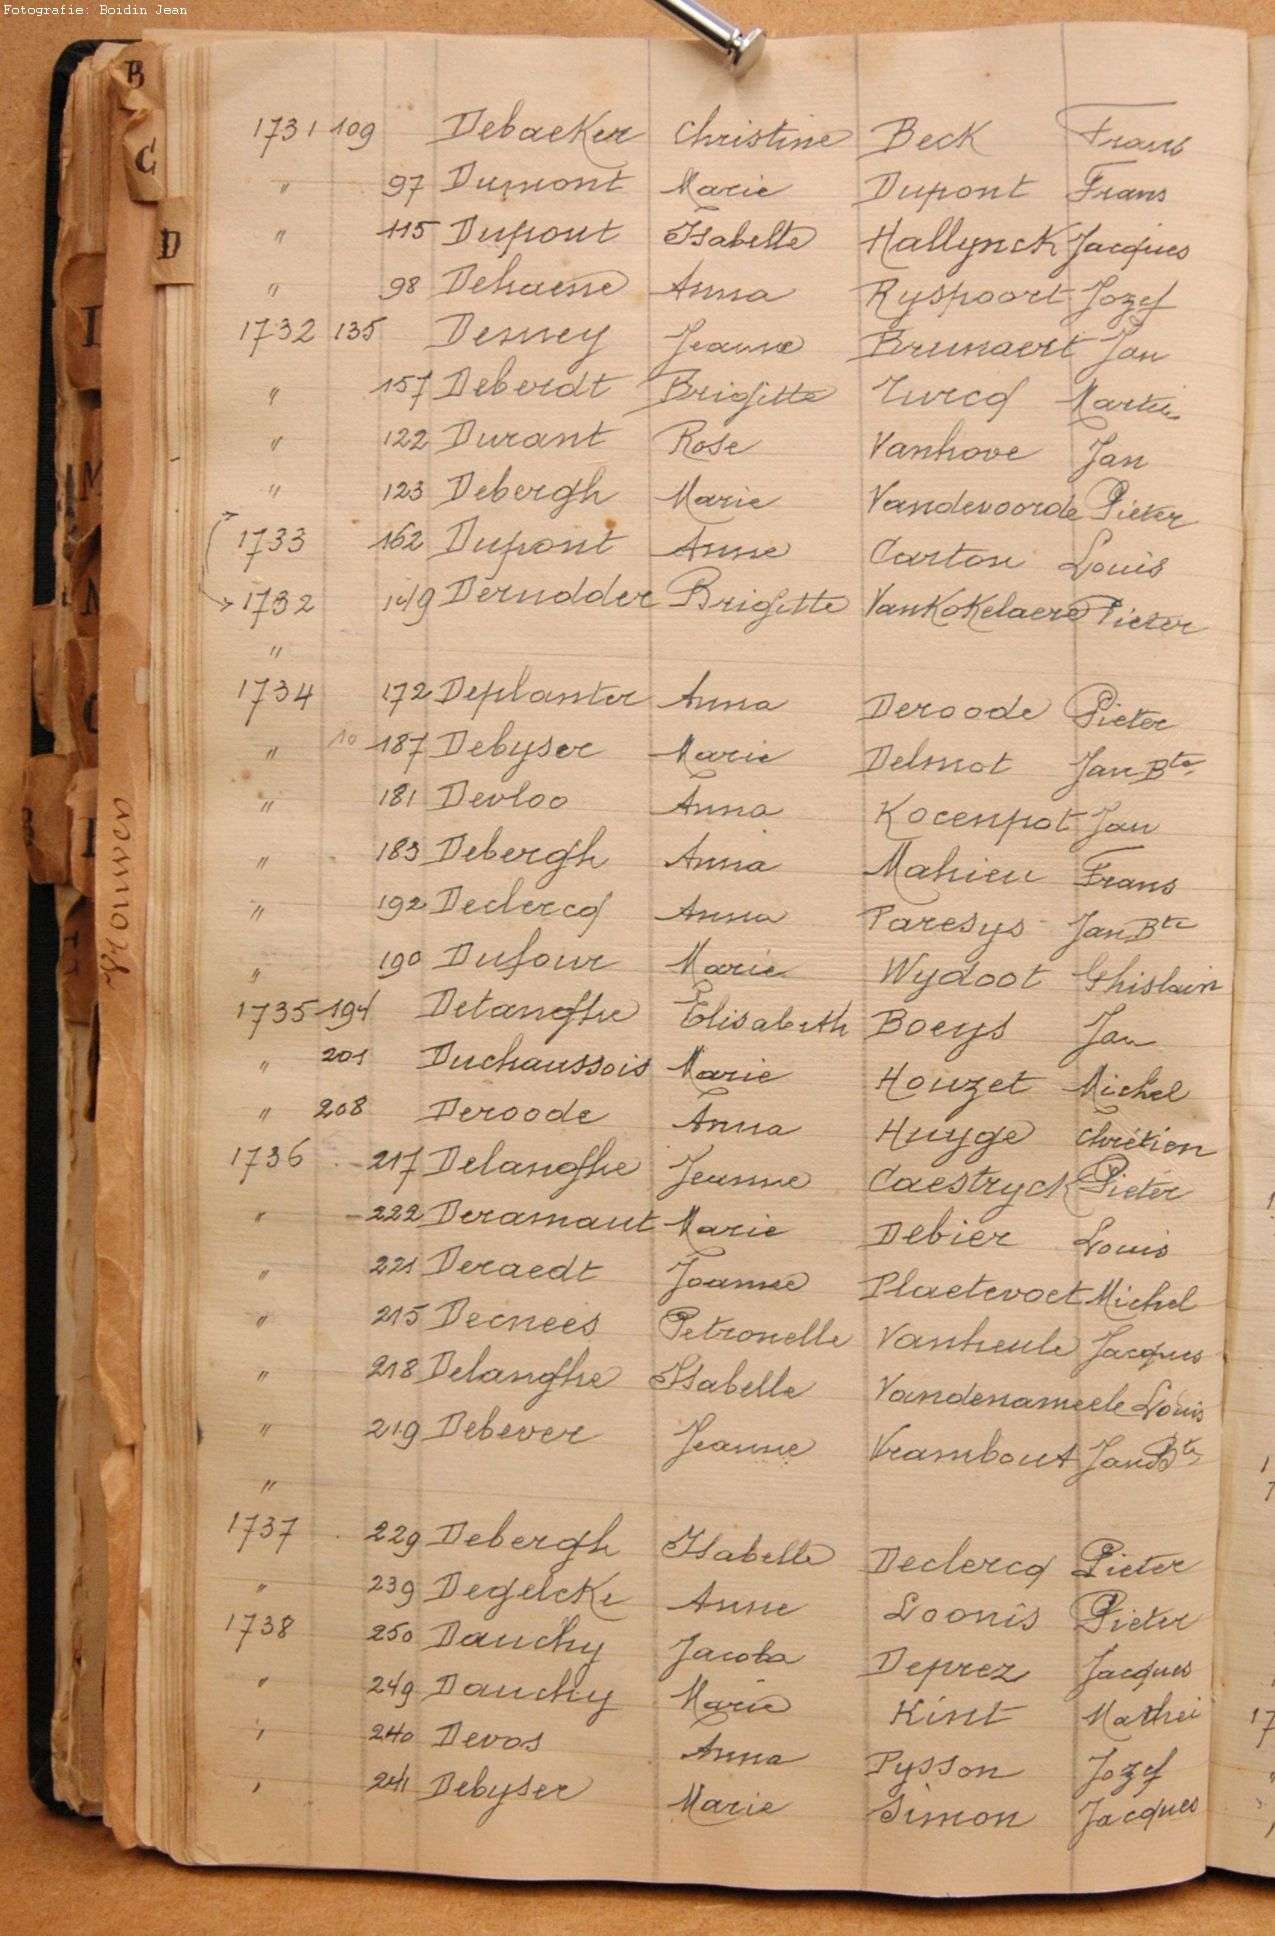 Fotografie: Boidin Jean
B
C
D
I
M
N
Vrouwen
1731 109 Debaeker Christine Beck Frans
" 97 Dumont Marie Dupont Frans
" 115 Dupont Isabelle Hallynck Jacques
" 98 Dehaene Anna Ryspoort Jozef
1732 135 Denney Jeanne Brunaert Jan
" 157 Deberdt Brigitte Turcq Martin
" 122 Durant Rose Vanhove Jan
" 123 Debergh Marie Vandevoorde Pieter
1733 162 Dupont Anne Carton Louis
1732 149 Derudder Brigitte VanKoKelaere Pieter
"
1734 172 Deplanter Anna Deroode Pieter
" 10 187 Debyser Marie Delmot Jan Bte
" 181 Devloo Anna Kocenpot Jan
" 183 Debergh Anna Mahieu Frans
" 192 Declercq Anna Paresys Jan Bte
" 190 Dufour Marie Wydoot Ghislain
1735 194 Detanghe Elisabeth Boeys Jan
" 201 Duchaussois Marie Houzet Michel
" 208 Deroode Anna Huyge Chrétien
1736 217 Delanghe Jeanne Caestryck Pieter
" 222 Deramaut Marie Debier Louis
" 221 Deraedt Joanne Plaetevoet Michel
" 215 Decnees Petronelle Vanheule Jacques
" 218 Delanghe Isabelle Vandenameele Louis
" 219 Debever Jeanne Vrambout Jan Bte
"
1737 229 Debergh Isabelle Declercq Pieter
" 239 Degelcke Anne Loonis Pieter
1738 250 Dauchy Jacoba Deprez Jacques
" 249 Dauchy Marie Kint Mathei
" 240 Devos Anna Pysson Jozef
" 241 Debyser Marie Simon Jacques